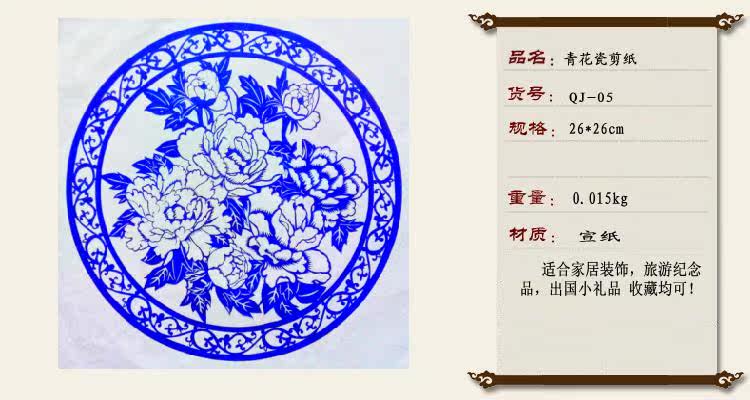 品名：青花瓷剪纸
货号：QJ-05
规格：26*26cm
重量：0.015kg
材质：宣纸
适合家居装饰，旅游纪念
品，出国小礼品 收藏均可！